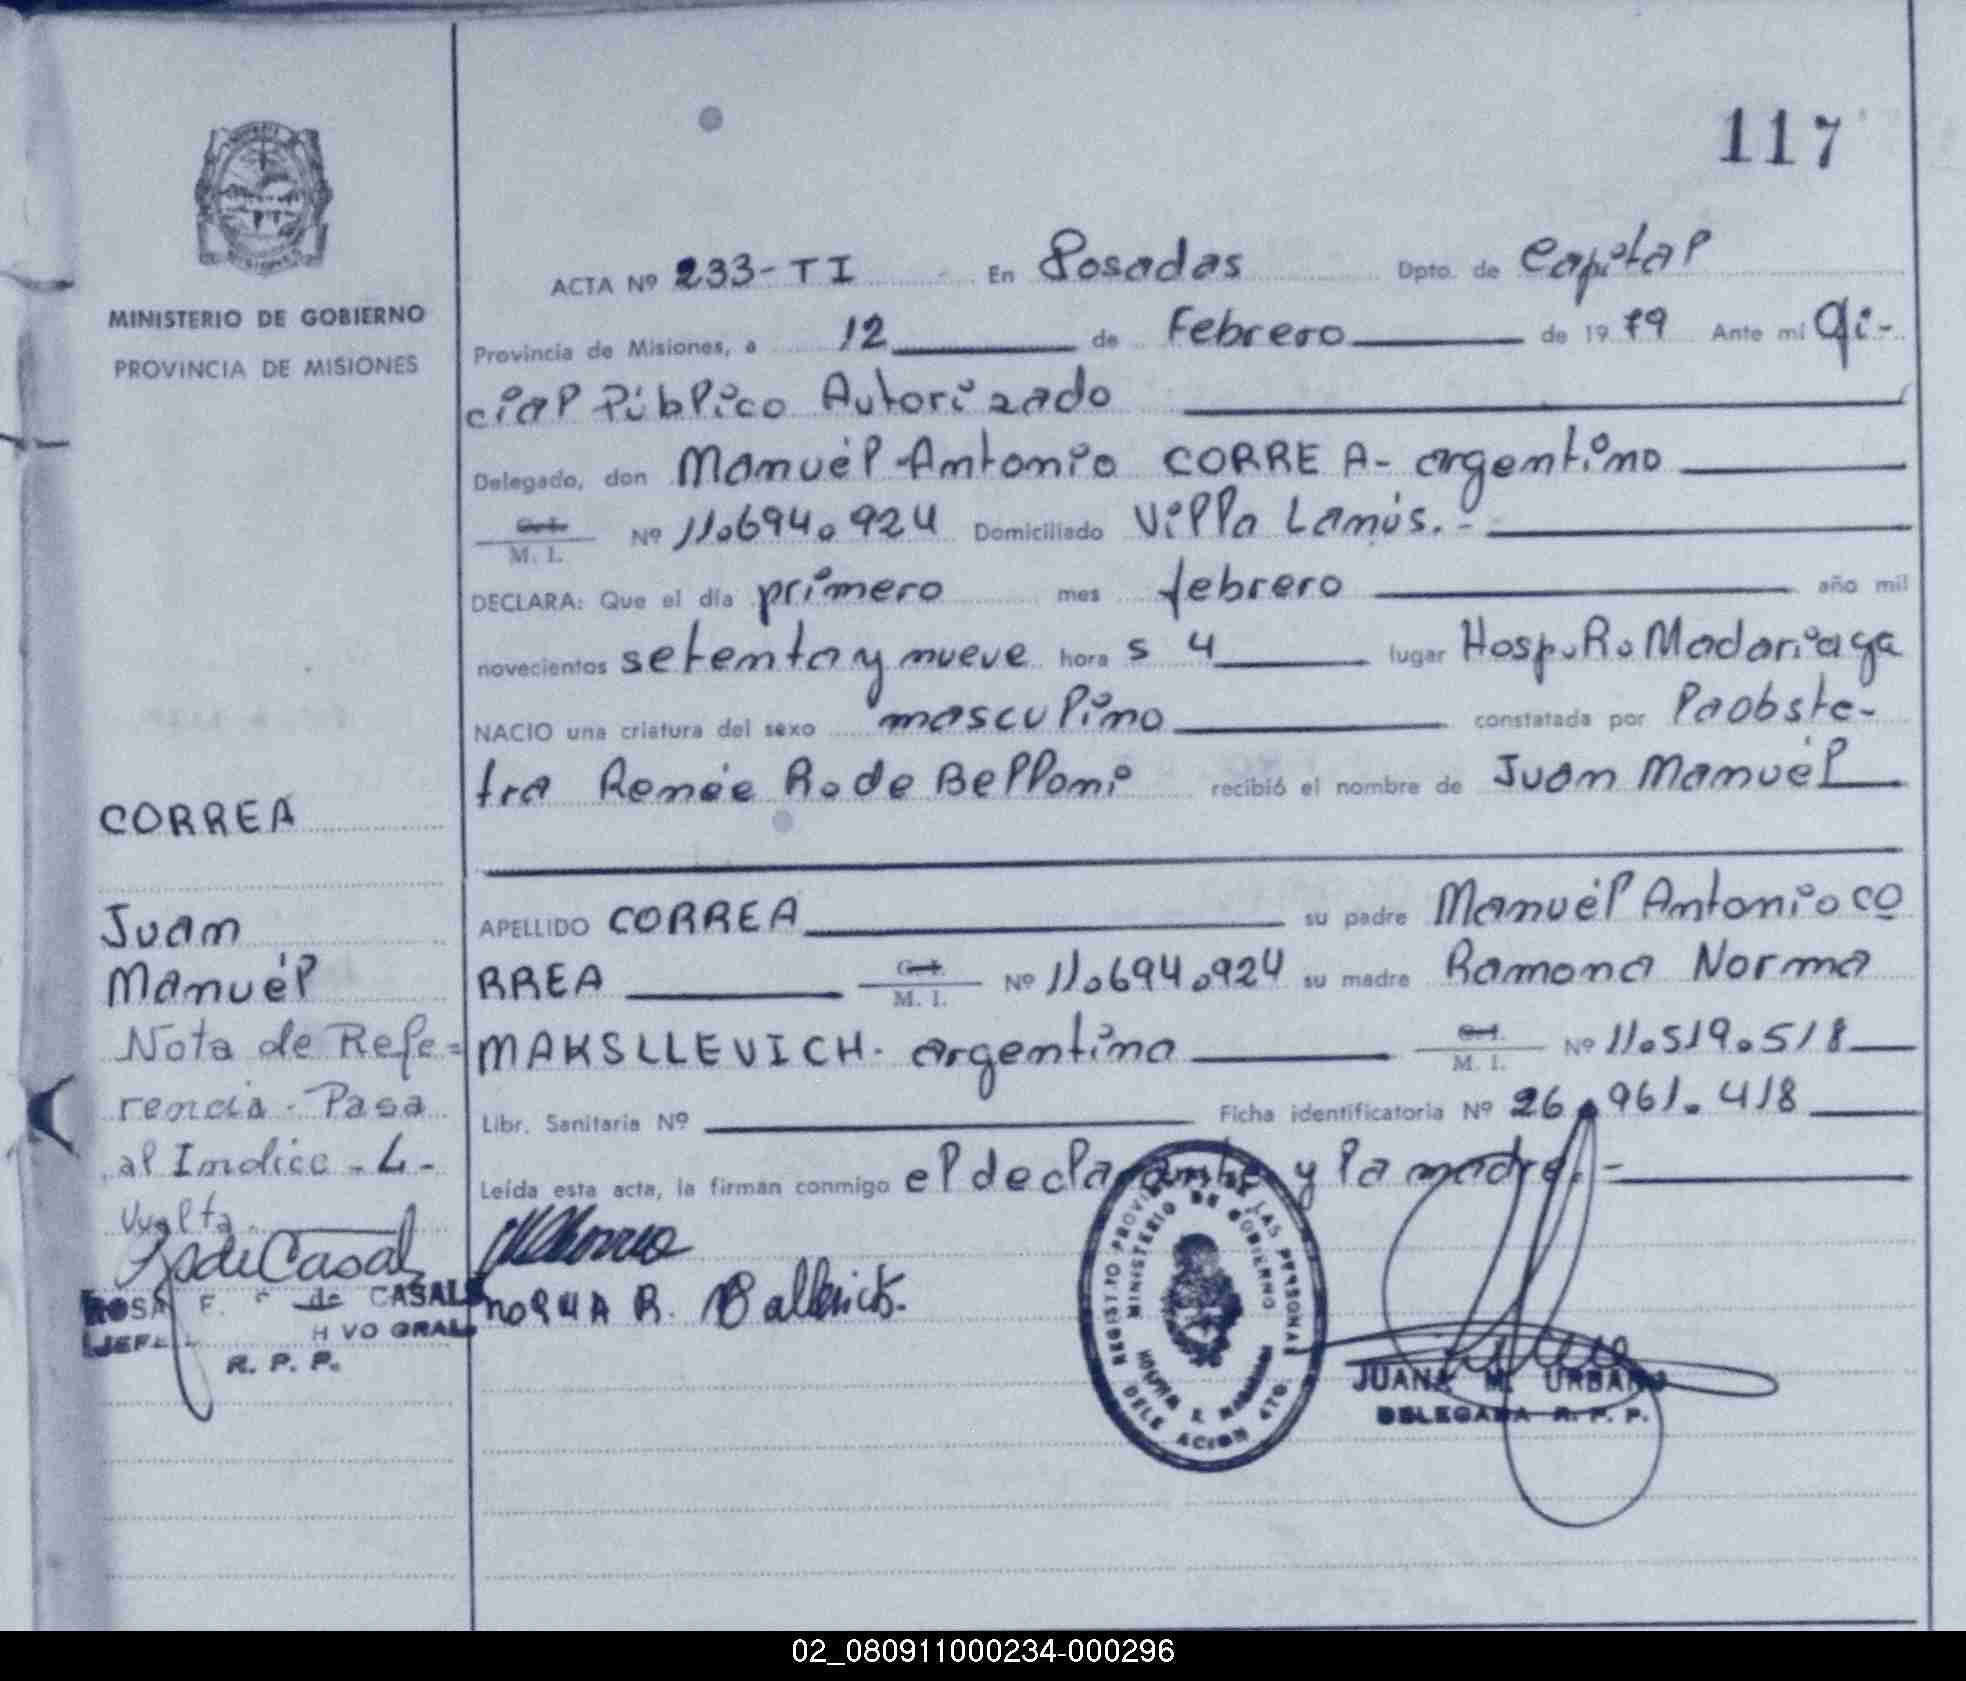 117
MINISTERIO DE GOBIERNO
PROVINCIA DE MISIONES
ACTA Nº 233-TI En Posadas Dpto. de Capital
Provincia de Misiones, a 12 de Febrero de 1979 Ante mi Ofi-
cial Público Autorizado
Delegado, don Manuél Antonio CORREA- argentino
C. I. M. I. Nº 11.694.924 Domiciliado Villa Lanús.-
DECLARA: Que el día primero mes febrero año mil
novecientos setenta y nueve hora s 4 lugar Hosp. R. Madariaga
NACIO una criatura del sexo masculino constatada por La obste-
tra Renée R. de Belloni recibió el nombre de Juan Manuél
APELLIDO CORREA su padre Manuél Antonio CO
RREA C. I. M. I. Nº 11.694.924 su madre Ramona Norma
MAKSLLEVICH- argentina C. I. M. I. Nº 11.519.518
Libr. Sanitaria Nº Ficha identificatoria Nº 26.961.418
Leída esta acta, la firman conmigo el declarante y la madre.-
CORREA
Juan
Manuél
Nota de Refe=
rencia - Pasa
al Indice - L -
Vuelta.
ROSA F. de CASALS
JEFE VO GRAL
R. P. P.
NORMA R.
REGISTRO PROVINCIAL DE LAS PERSONAS
MINISTERIO DE GOBIERNO
DELEGACION 4TO.
JUANA M. URBANO
DELEGADA R. P. P.
02_080911000234-000296